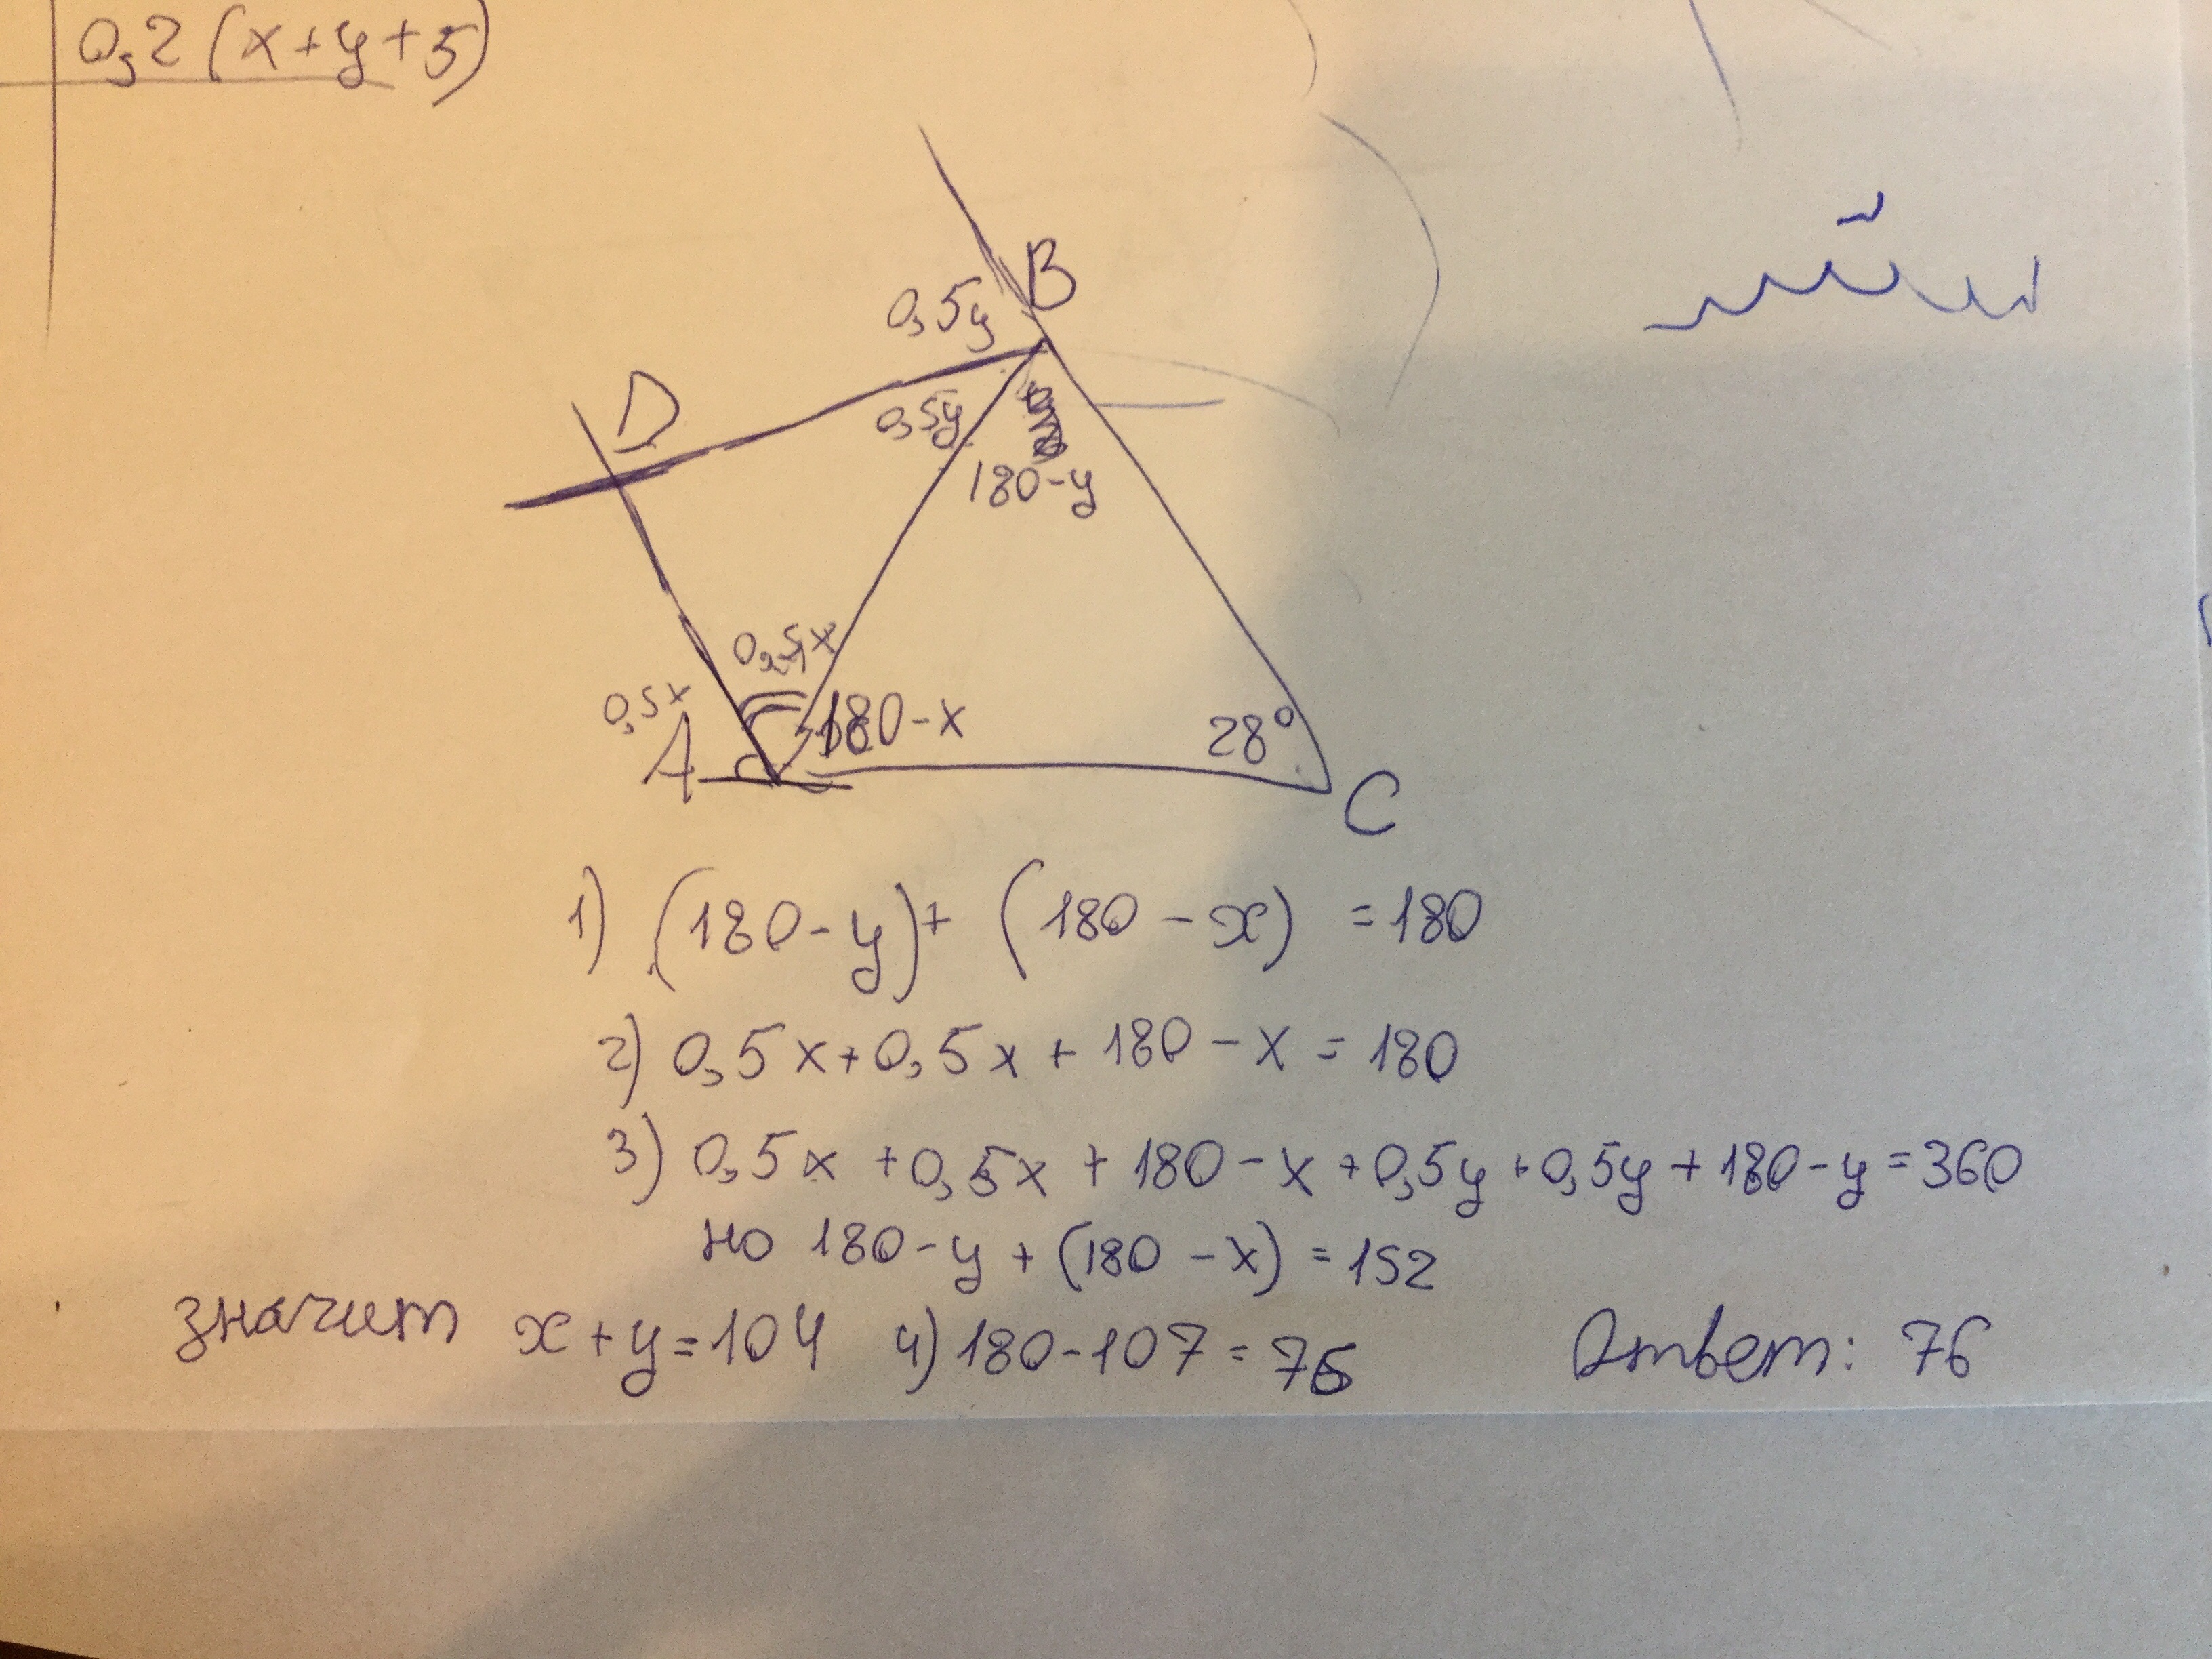 0,2 (x+y+5)
B
0,5y
D
0,5y
180-y
0,5x
0,5x
180-x
28°
A
C
1) (180-y)+ (180-x) =180
2) 0,5x+0,5x+180-x=180
3) 0,5x+0,5x+180-x+0,5y+0,5y+180-y=360
но 180-y+(180-x)=152
значит x+y=104 4) 180-107=76 Ответ: 76